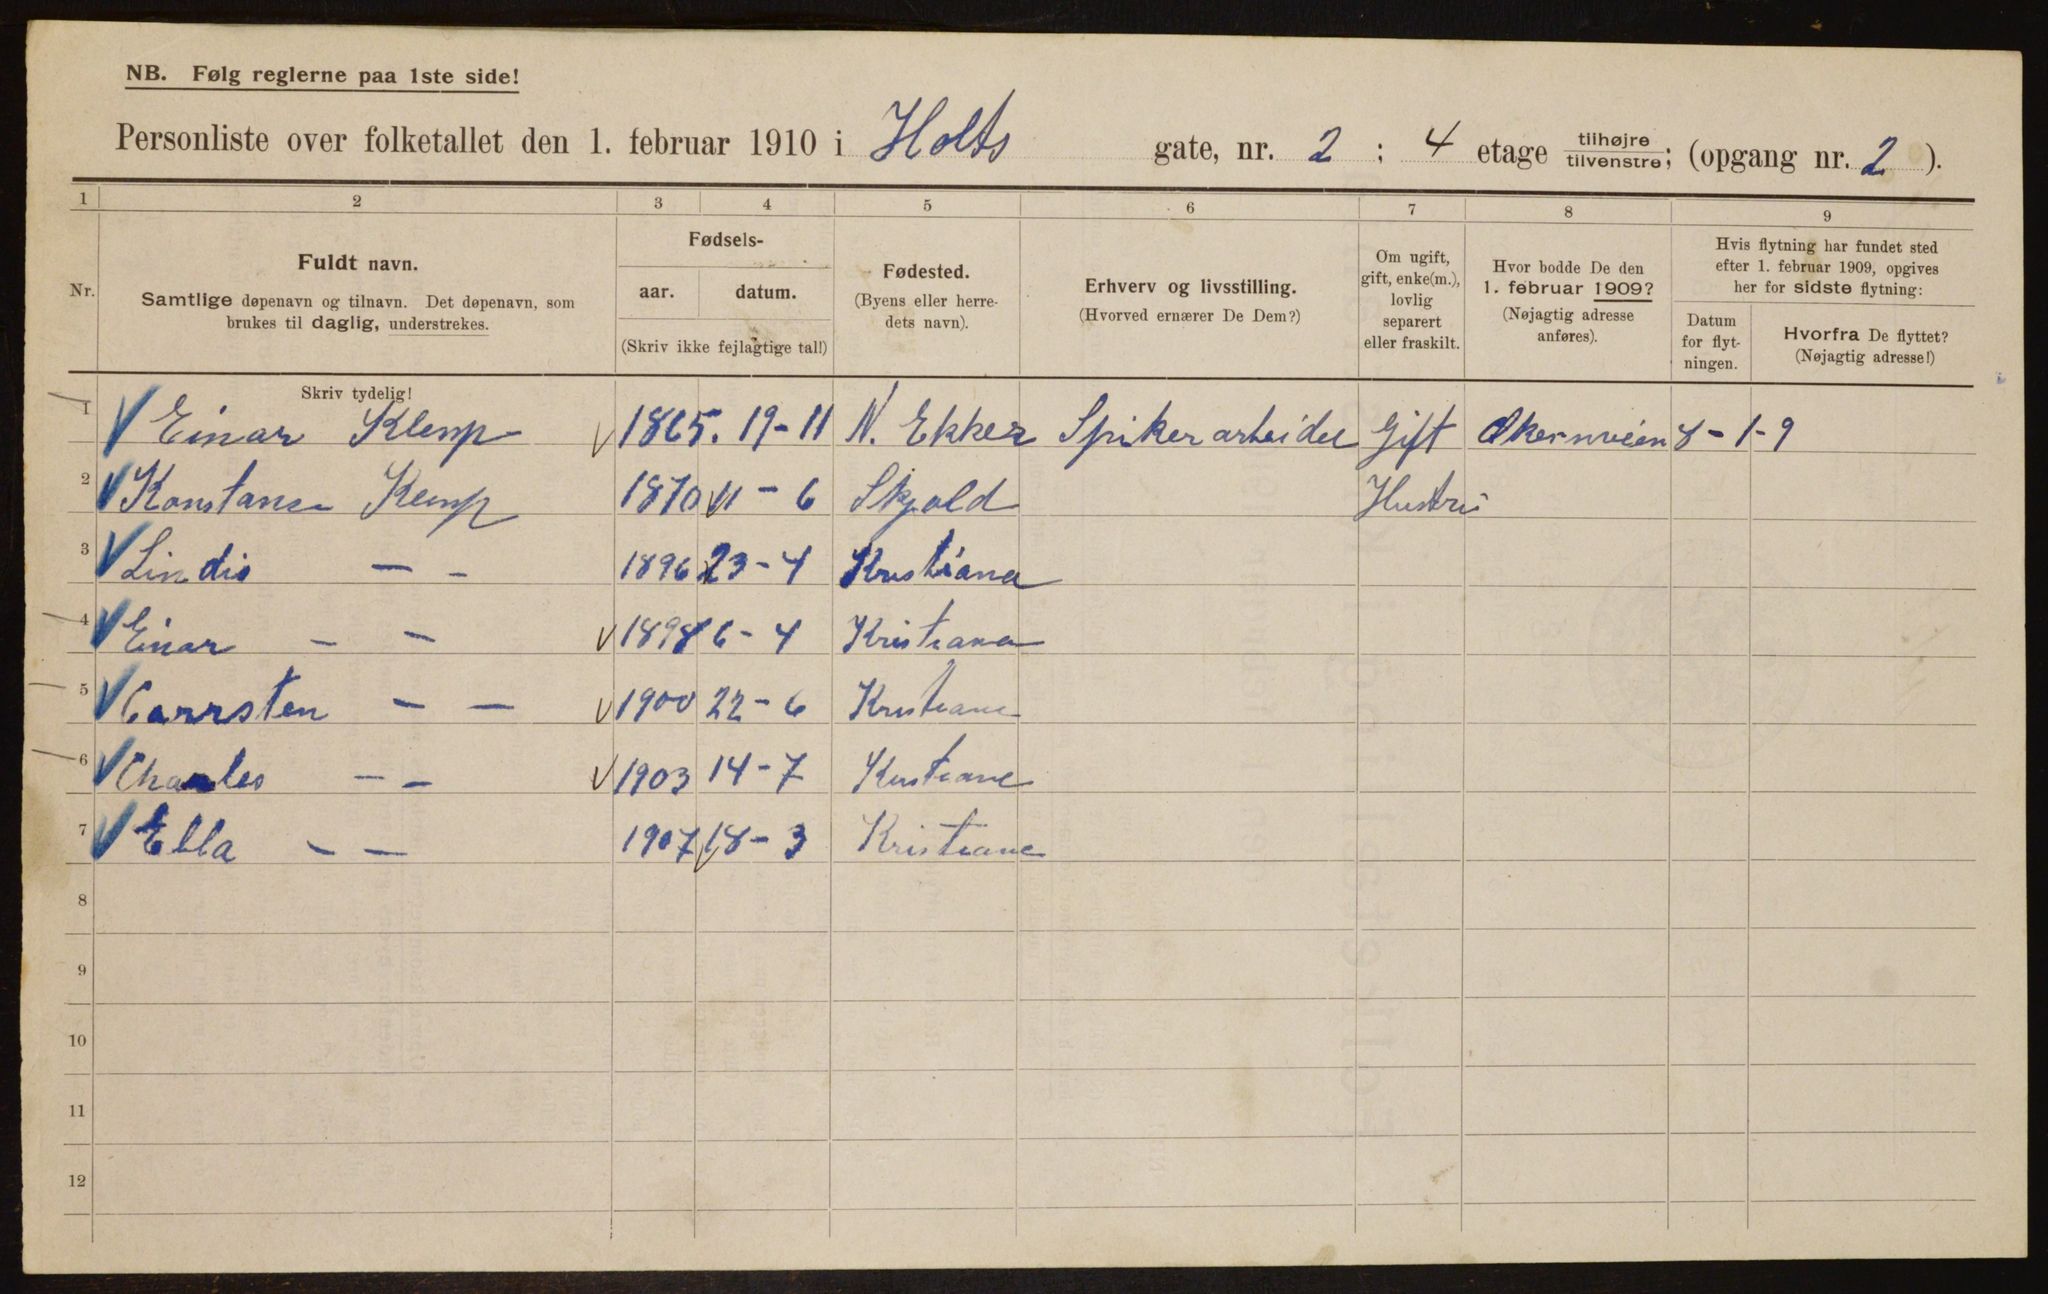 NB. Følg reglerne paa 1ste side!
Personliste over folketallet den 1. februar 1910 i Holts gate, nr. 2 ; 4 etage tilhøjre tilvenstre; (opgang nr. 2 ).
1 2 3 4 5 6 7 8 9
Nr.
Fuldt navn.
Samtlige døpenavn og tilnavn. Det døpenavn, som
brukes til daglig, understrekes.
Skriv tydelig!
Fødsels-
aar. datum.
(Skriv ikke fejlagtige tal!)
Fødested.
(Byens eller herre-
dets navn).
Erhverv og livsstilling.
(Hvorved ernærer De Dem?)
Om ugift,
gift, enke(m.),
lovlig
separert
eller fraskilt.
Hvor bodde De den
1. februar 1909?
(Nøjagtig adresse
anføres).
Hvis flytning har fundet sted
efter 1. februar 1909, opgives
her for sidste flytning:
Datum
for flyt-
ningen.
Hvorfra De flyttet?
(Nøjagtig adresse!)
1 Einar Klemp 1865. 19-11 N. Ekker Spikerarbeider Gift Økernveien 8-1-9
2 Konstanse Kemp 1870 11-6 Skjold Hustru
3 Lindis — - 1896 23-4 Kristiana
4 Einar - - 1898 6-4 Kristiana
5 Carrsten — — 1900 22-6 Kristiane
6 Charles — - 1903 14-7 Kristiane
7 Ella — — 1907 18-3 Kristiane
8
9
10
11
12